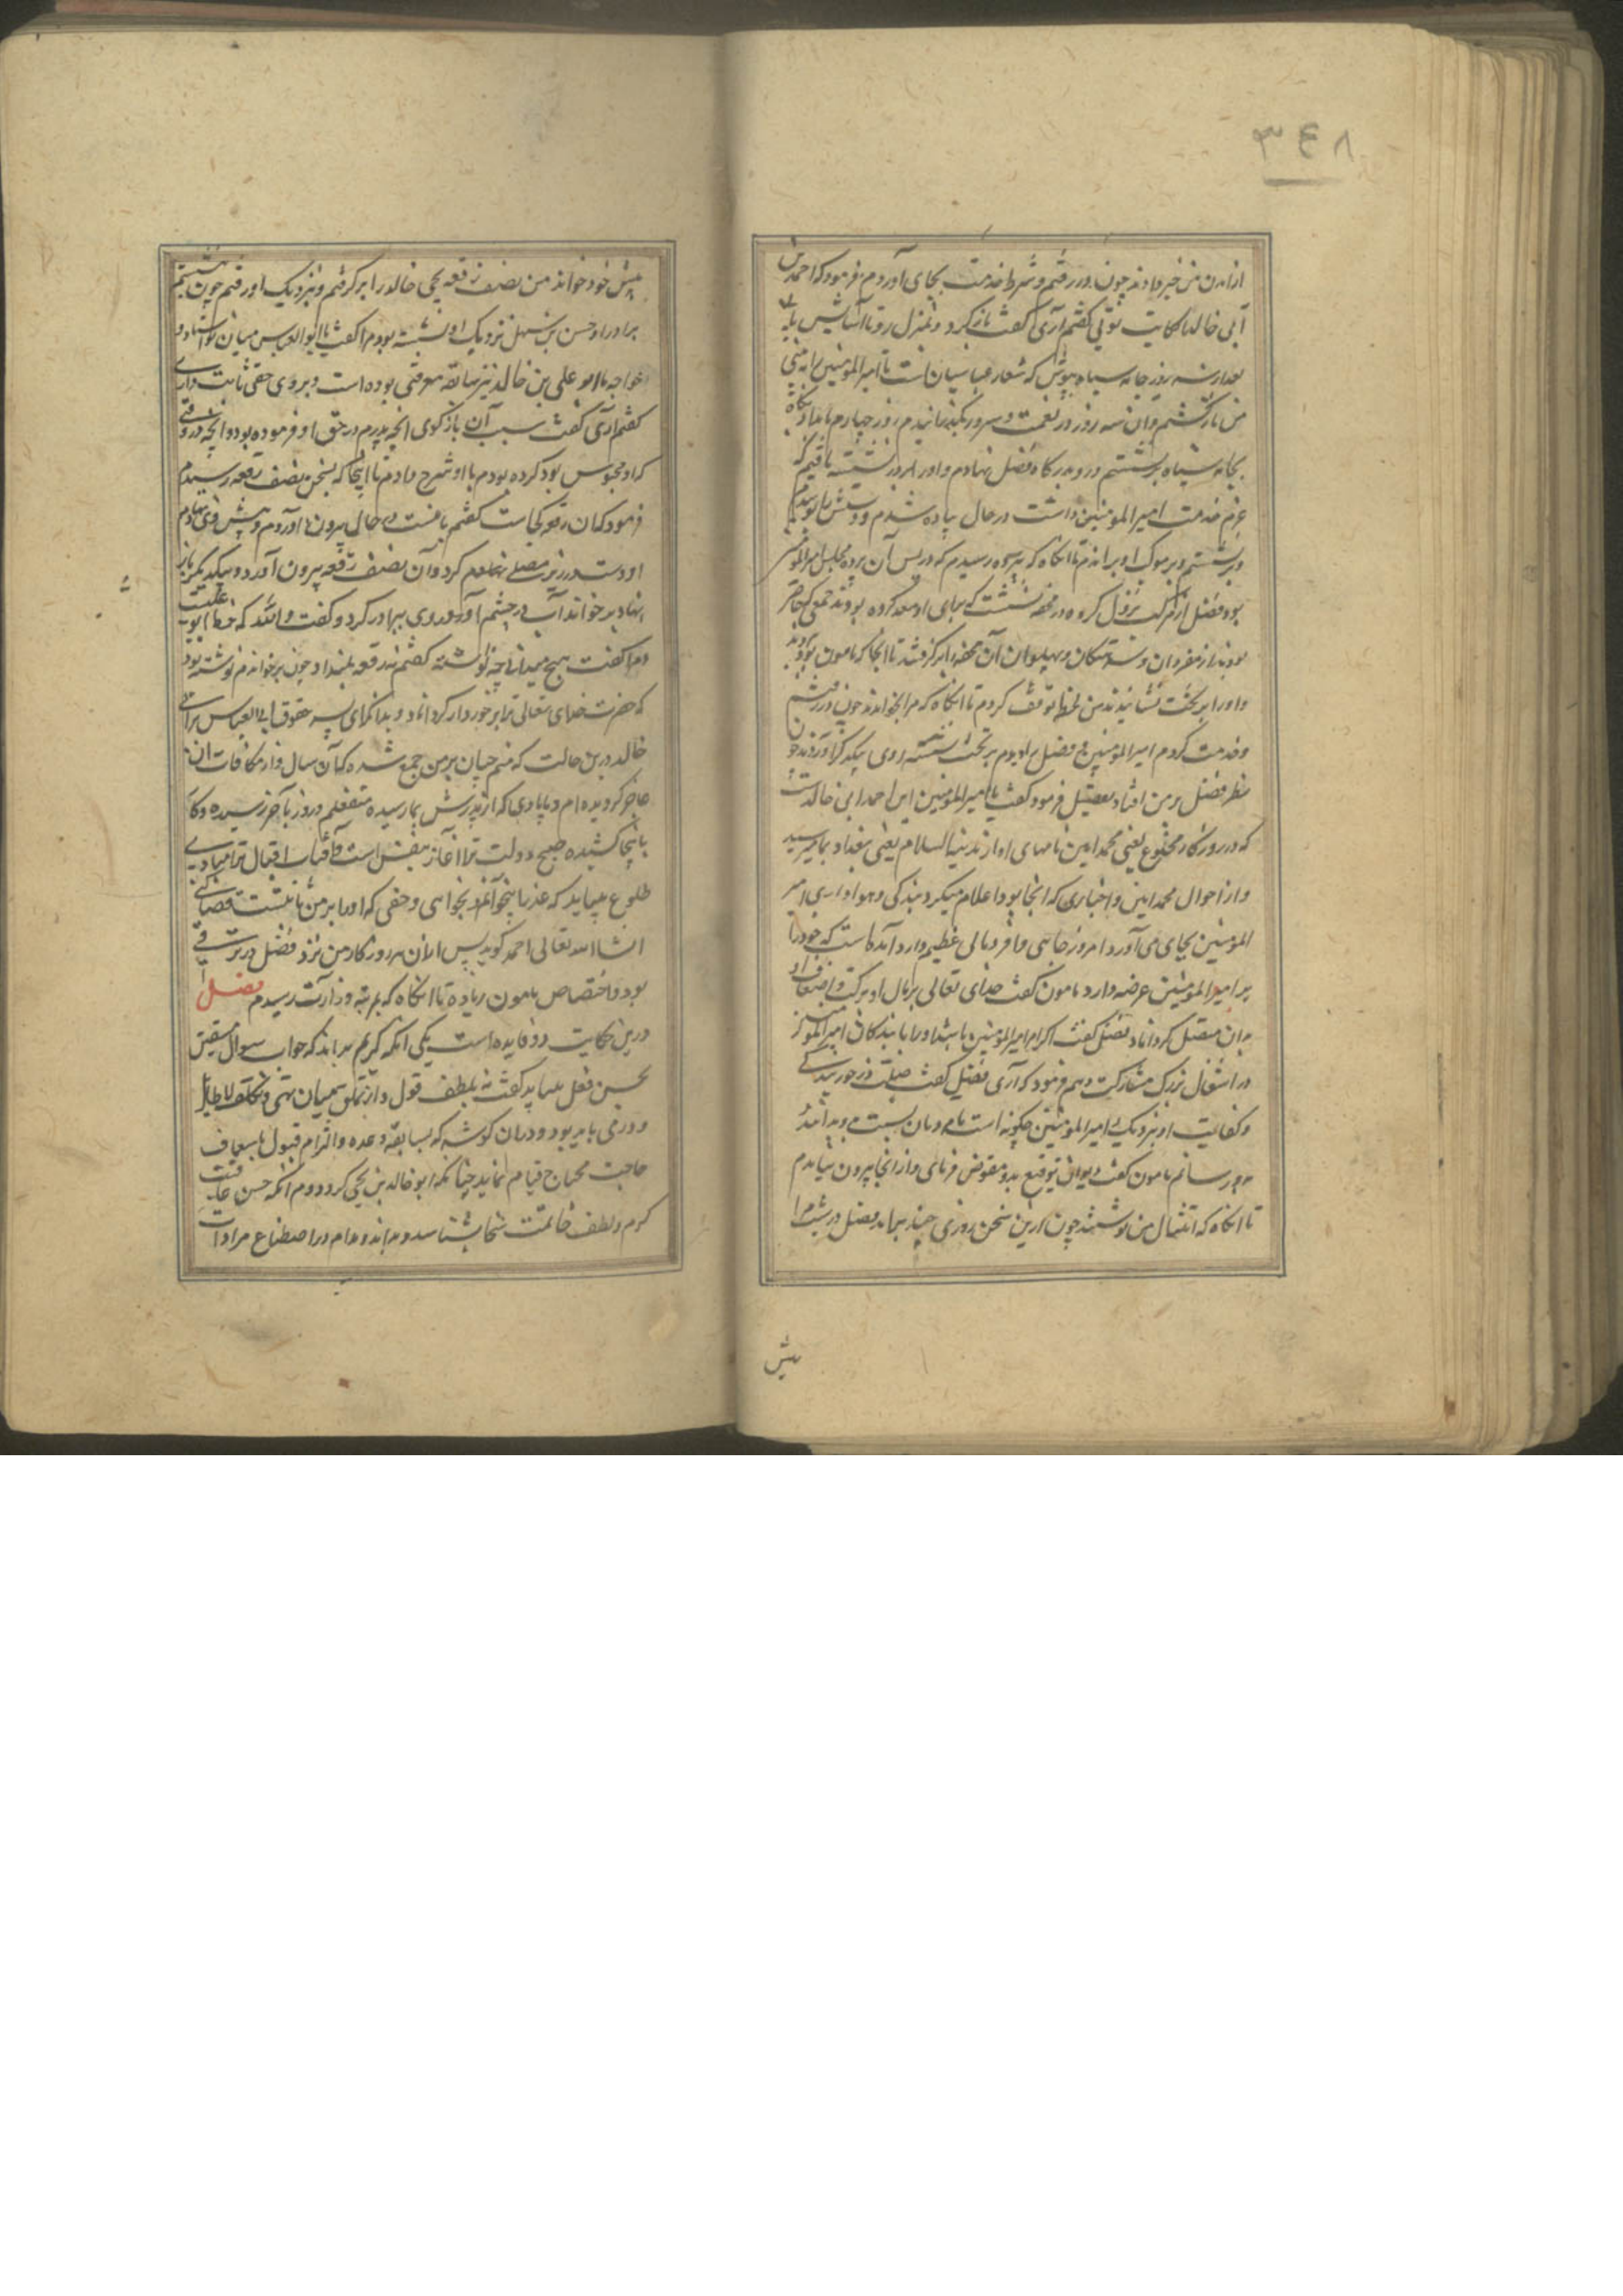 ٣٤٨
از آمدن من خبر دادند چون در رفتم و شرط خدمت بجای آوردم فرمود که احمد بن
ابی خالد کاتب تویی گفتم آری گفت باز کرد و بمنزل رو تا آسایش یابی
بعد از سه روز جامه سیاه بپوش که شعار عباسیان است تا امیر المؤمنین را ببینی
من بازگشتم و آن سه روز در نعمت و سرور بگذرانیدم روز چهارم بامداد پگاه
بجامه سیاه برنشستم و رو بدرگاه فضل نهادم و او را بر در نشسته یافتم که
عزم خدمت امیر المومنین داشت در حال پیاده شدم و دستش را بوسیدم
و برنشستم و بر موکب او براندم تا آنگاه که بپرده رسیدم که در پس آن پرده مجلس امیر المومنین
بود فضل از مرکب نزول کرده در محفه نشست که برای او معد کرده بودند جمعی که حاضر
بودند از مفردان و آن محفه را برگرفتند تا آنجا که مامون بود بردند
و او را بر تخت نشانیدند من لحظه توقف کردم تا آنگاه که مرا بخواندند چون در رفتم
و خدمت کردم امیر المؤمنین و فضل را دیدم بر تخت نشسته روی بیکدیگر آورده چون
نظر فضل بر من افتاد فرمود گفت یا امیر المؤمنین این احمد ابی خالدست
که در روزگار مخلوع یعنی محمد امین نامهای او از مدینة السلام یعنی بغداد بما میرسید
و از احوال محمد امین و اخباری که آنجا بود اعلام میکرد و بندگی و هواداری امیر
المؤمنین بجای می آورد امروز جاهی وافر و مالی عظیم وارد آمده است که خود را
بر امیر المؤمنین عرضه دارد مامون گفت خدای تعالی بر مال او برکت و اضعاف آن
بدان متصل گرداناد فضل گفت اکرام امیر المؤمنین باشد او را با بندگان امیر المؤمنین
در اشغال بزرگ مشارکت دهم فرمود که آری فضل گفت
و کفایت او بنزدیک امیر المؤمنین چگونه است
رسانم مامون گفت دیوان توقیع بدو مفوض فرمای و از آنجا بیرون نیامدم
تا آنگاه که مثال من نوشتند چون ازین سخن روزی چند برآمد فضل در شب مرا
پیش
پیش خود خواند من نصف رقعه یحیی خالد را برگرفتم و بنزدیک او رفتم چون بنشستم
برادر او حسن بن سهل نزدیک او نشسته بود مرا گفت یا ابو العباس میان تو و استاد و
خواجه ما ابو علی بن خالد نیز سابقه معرفتی بوده است و بر وی حقی ثابت داری
گفتم آری گفت سبب آن بازگوی آنچه پدرم در حق او فرموده بود و آنچه در وقتی
که او محبوس بود کرده بودم با او شرح دادم تا آنجا که بسخن نصف رقعه رسیدم
فرمود که آن رقعه کجاست گفتم با منست در حال بیرون آوردم و پیش وی نهادم
او دست در زیر مصلی کرد و آن نصف رقعه بیرون آورد و بیکدیگر باز
نهاد و برخواند آب در چشم آورد و روی ببرادر کرد و گفت والله که خط ابو علیست
و مرا گفت هیچ میدانی چه نوشته گفتم نه رقعه بمن داد چون برخواندم نوشته بود
که حضرت خدای تعالی ترا برخوردار گرداناد و بدانکه ای پسر حقوق ابی العباس بن ابی
خالد درین حالت که منم چنان بر من جمع شده که آن سال و از مکافات آن
عاجز گردیده ام و بپادشاهی که از پدرش بما رسیده و روز بآخر رسیده و کار
باینجا کشیده صبح دولت ترا آغاز تنفس است و آفتاب اقبال ترا مبادی
طلوع میباید که عذر ما بخوانی و حقی که او را بر من ثابتست قضا کنی
انشاء الله تعالی احمد گوید پس از آن هر روز کار من نزد فضل در ترقی
بود و اختصاص بمامون زیاده تا آنگاه که بمرتبه وزارت رسیدم فصل
درین حکایت دو فایده است یکی آنکه کریم بداند که جواب سوال
بحسن فعل میباید گفت نه بلطف قول و از تملق بمیان تهی و تکلف لا طایل
دور می باید بود و در آن کوشد که بسابقه وعده و التزام قبول باسعاف
حاجت محتاج قیام نماید چنانکه ابو خالد بن یحیی کرد دوم آنکه حسن عاقبت
کرم و لطف خاتمت سخا بشناسد و بداند و مادام در اصطناع مرادات